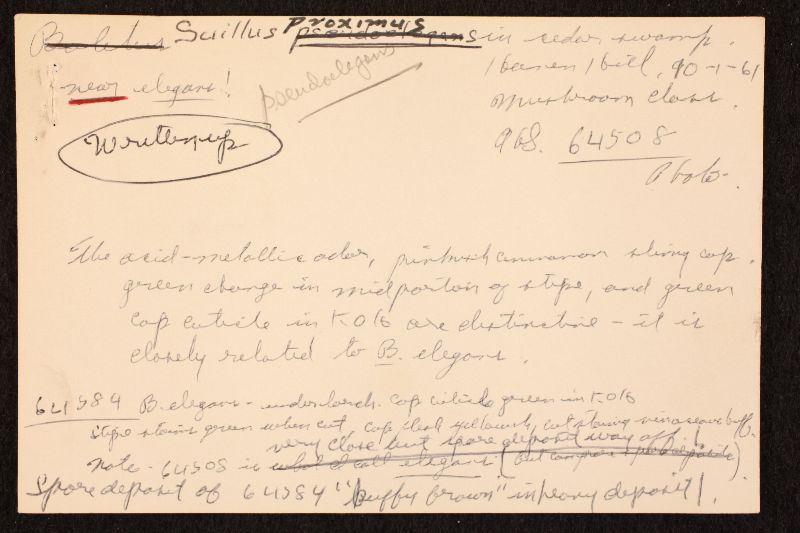 Boletus Suillus proximus pseudoelegans in cedar swamp.
near elegans! pseudoelegans
Haven Hill, 90-1-61
Mushroom class.
Written up
AHS. 64508
Photo.
The acid-metallic odor, pinkish cinnamon slimy cap,
green change in midportion of stipe, and green
cap cuticle in KOH are distinctive - it is
closely related to B. elegans.
64584 B. elegans - under larch. Cap cuticle green in KOH
stipe stains green when cut, cap flesh yellowish, cut staining vinaceous buff.
very close but spore deposit way off!
Note - 64508 is what I call elegans (but compare spore deposits).
Spore deposit of 64584 "buffy brown" in heavy deposit!